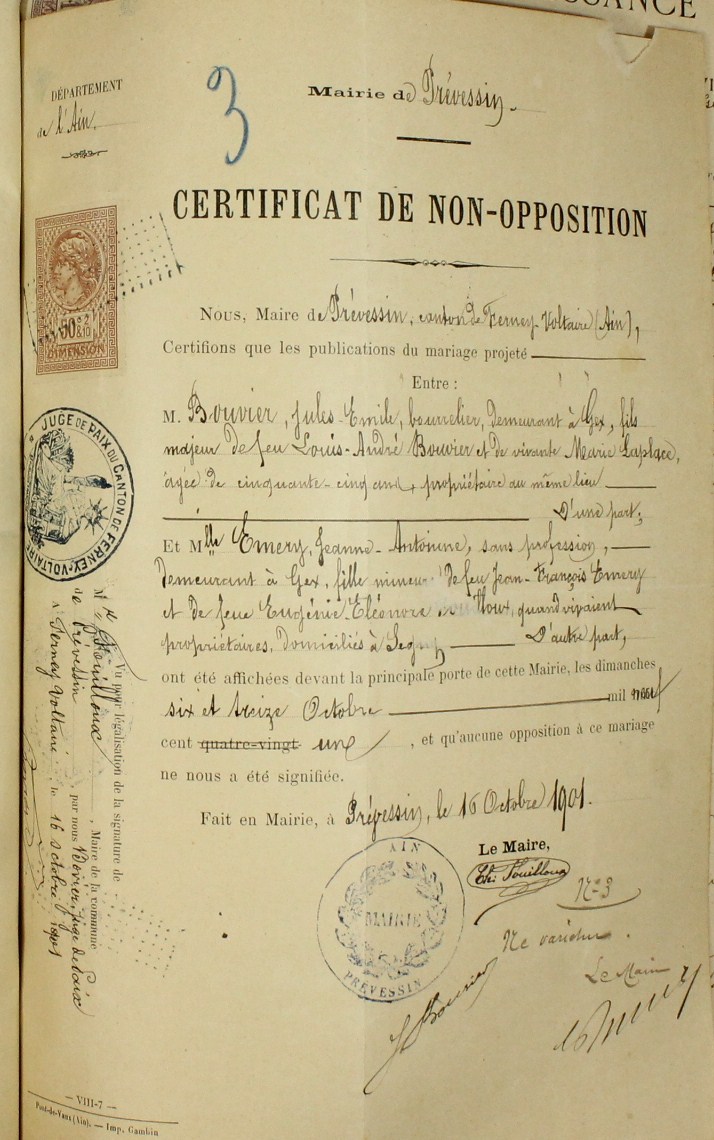 SSANCE
DÉPARTEMENT
de l'Ain.
3
Mairie de Prévessin.
CERTIFICAT DE NON-OPPOSITION
50 c 2/10
DIMENSION
Nous, Maire de Prévessin, canton de Ferney-Voltaire (Ain),
Certifions que les publications du mariage projeté
Entre :
M. Bouvier, Jules-Emile, bourrelier, demeurant à Gex, fils
majeur de feu Louis-André Bouvier et de vivante Marie Laplace,
âgée de cinquante-cinq ans, propriétaire au même lieu
D'une part;
Et Mlle Emery, Jeanne-Antoinne, sans profession,
demeurant à Gex, fille mineure de feu Jean-François Emery
et de feue Eugénie-Eléonore quand vivaient
propriétaires, domiciliés à Segny D'autre part,
ont été affichées devant la principale porte de cette Mairie, les dimanches
six et treize Octobre mil neuf
cent quatre-vingt un , et qu'aucune opposition à ce mariage
ne nous a été signifiée.
Fait en Mairie, à Prévessin, le 16 Octobre 1901.
Le Maire,
Fouilloux
AIN
MAIRIE
PRÉVESSIN
N° 3
Ne varietur.
Le Maire
J Bouvier
JUGE DE PAIX DU CANTON DE FERNEY-VOLTAIRE
Vu pour légalisation de la signature de
M. Fouilloux, Maire de la commune
de Prévessin, par nous Juge de Paix
à Ferney Voltaire, le 16 octobre 1901
— VIII-7 —
Pont-de-Vaux (Ain). — Imp. Gambin